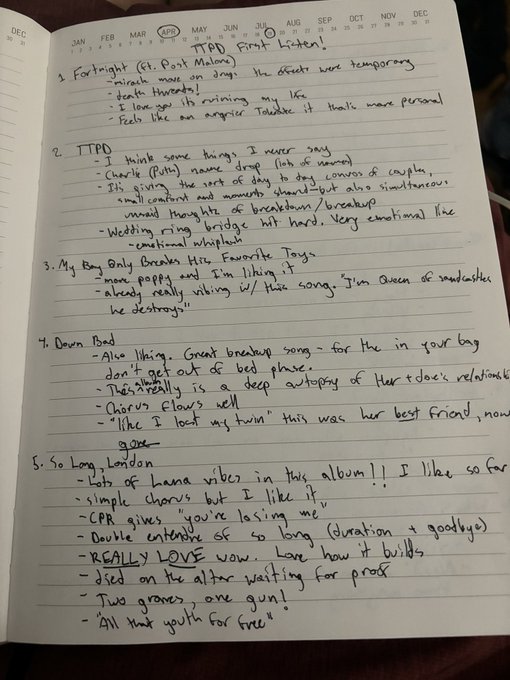 DEC
30 31
JAN FEB MAR APR MAY JUN JUL AUG SEP OCT NOV DEC
TTPD First Listen!
1. Fortnight (ft. Post Malone)
- miracle move on drug: the effects were temporary
- death threats!
- I love you its ruining my life
- Feels like an angrier Tolerate it that's more personal
2. TTPD
- I think some things I never say
- Charlie (Puth) name drop (lots of names)
- It's giving the sort of day to day convos of couples,
small comforts and moments shared - but also simultaneous
unsaid thoughts of breakdown/breakup
- Wedding ring bridge hit hard. Very emotional line
- emotional whiplash
3. My Boy Only Breaks His Favorite Toys
- more poppy and I'm liking it
- already really vibing w/ this song. "I'm Queen of sandcastles
he destroys"
4. Down Bad
- Also liking. Great breakup song - for the in your bag
don't get out of bed phase.
- This album really is a deep autopsy of Her + Joe's relationsh
- Chorus flows well
- "like I lost my twin" this was her best friend, now
gone
5. So Long, London
- Lots of Lana vibes in this album!! I like so far
- simple chorus but I like it
- CPR gives "you're losing me"
- Double entendre of so long (duration + goodbye)
- REALLY LOVE wow. Love how it builds
- died on the altar waiting for proof
- Two graves, one gun!
- "All that youth for free"